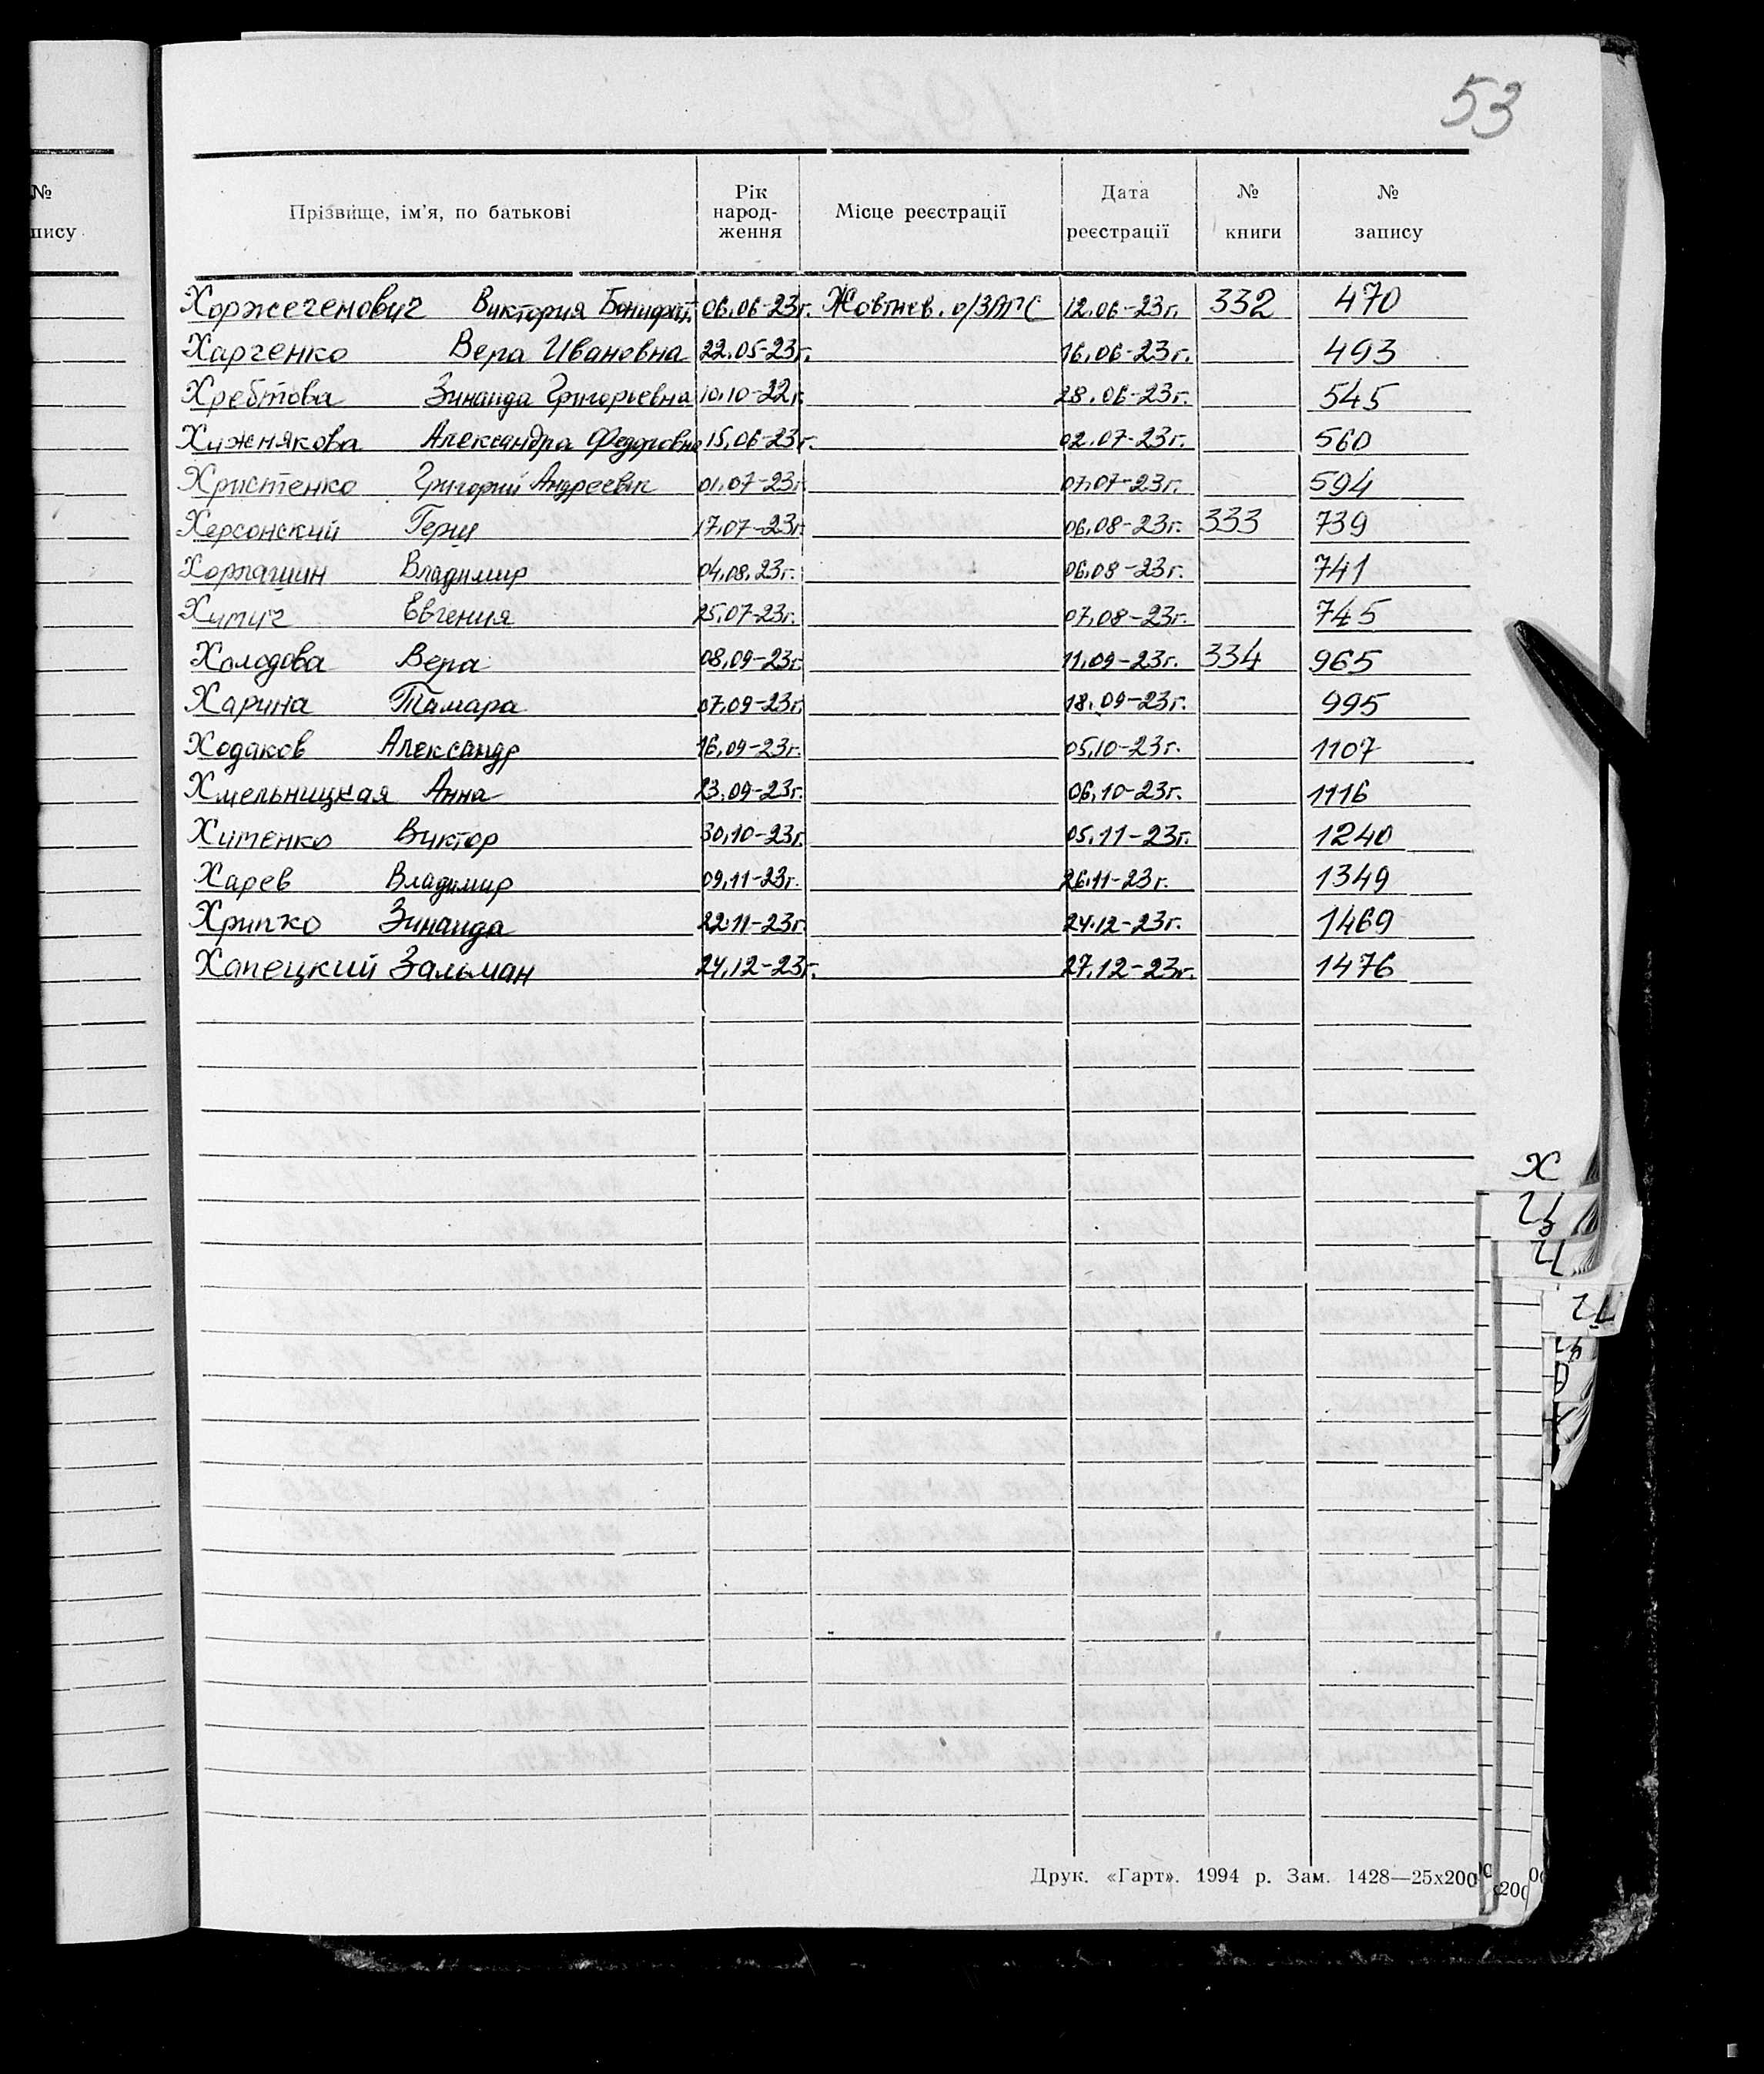 53
№
пису
Прізвище, ім'я, по батькові Рік народ-ження Місце реєстрації Дата реєстрації № книги № запису
Хоржегенович Виктория Бонифат. 06.06-23г. Жовтнев. о/ЗАГС 12.06-23г. 332 470
Харченко Вера Ивановна 22.05-23г. 16.06-23г. 493
Хребтова Зинаида Григорьевна 10.10-22г. 28.06-23г. 545
Хижнякова Александра Федоровна 15.06-23г. 02.07-23г. 560
Христенко Григорий Андреевич 01.07-23г. 07.07-23г. 594
Херсонский Герш 17.07-23г. 06.08-23г. 333 739
Хорпашин Владимир 04.08.23г. 06.08-23г. 741
Хитич Евгения 25.07-23г. 07.08-23г. 745
Холодова Вера 08.09-23г. 11.09-23г. 334 965
Харина Тамара 07.09-23г. 18.09-23г. 995
Ходаков Александр 16.09-23г. 05.10-23г. 1107
Хмельницкая Анна 23.09-23г. 06.10-23г. 1116
Хименко Виктор 30.10-23г. 05.11-23г. 1240
Харев Владимир 09.11-23г. 26.11-23г. 1349
Хрипко Зинаида 22.11-23г. 24.12-23г. 1469
Хапецкий Зальман 24.12-23г. 27.12-23г. 1476
Х
Друк. «Гарт». 1994 р. Зам. 1428—25х200